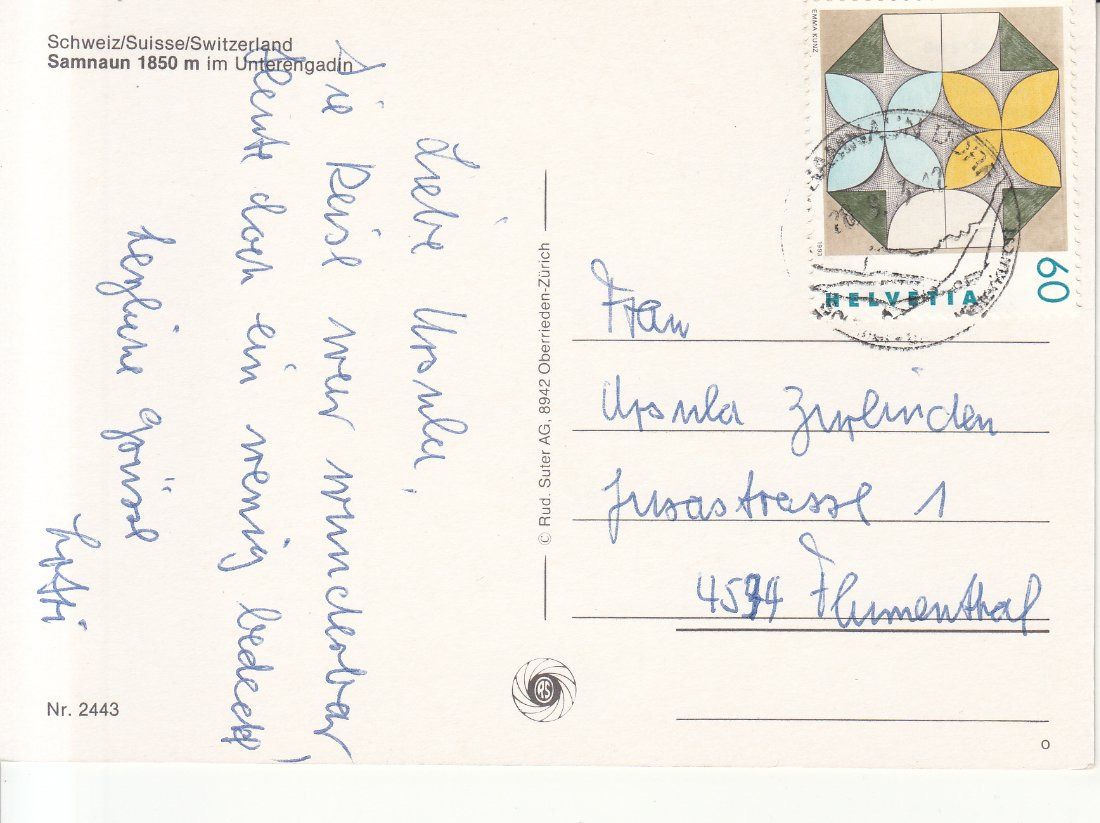 Schweiz/Suisse/Switzerland
Samnaun 1850 m im Unterengadin
Liebe Ursula,
Die Reise war wunderbar
Heute doch ein wenig bedeckt!
herzliche Grüsse
© Rud. Suter AG, 8942 Oberrieden-Zürich
RS
Nr. 2443
EMMA KUNZ
1993
HELVETIA
60
SAMNAUN DORF
Frau
Ursula Zurlinden
Jurastrasse 1
4534 Flumenthal
O